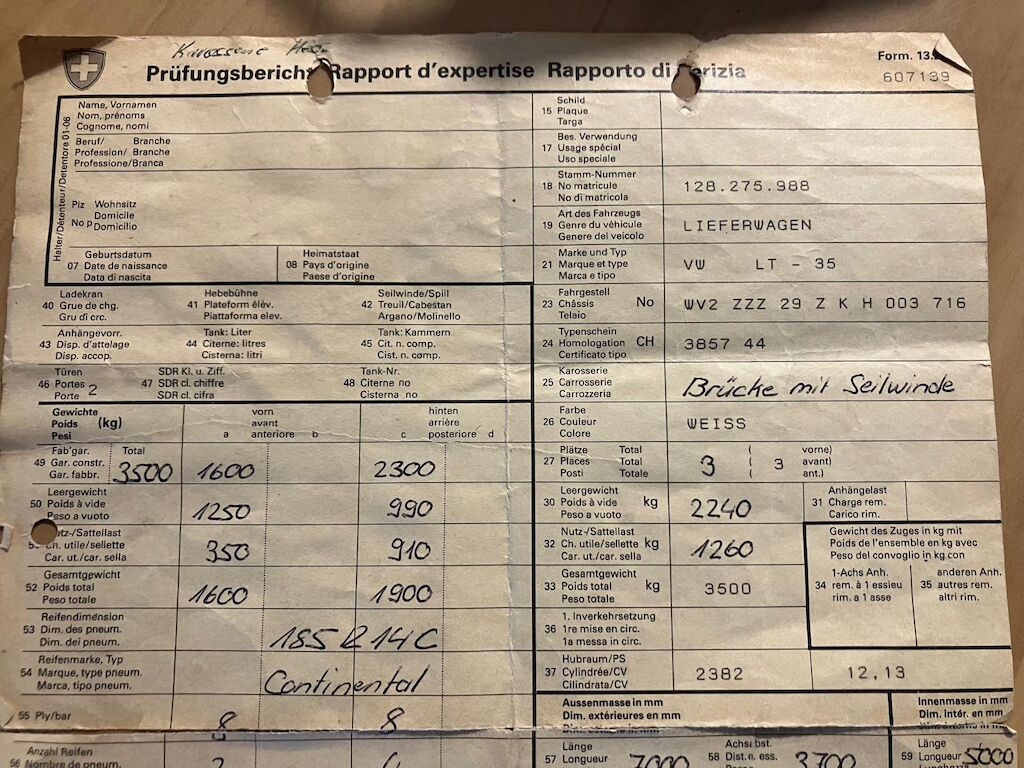 Prüfungsbericht Rapport d'expertise Rapporto di perizia
Form. 13.
607139
Name, Vornamen
Nom, prénoms
Cognome, nomi
Beruf/ Branche
Profession/ Branche
Professione/Branca
Plz Wohnsitz
Domicile
No p Domicilio
Halter/Détenteur/Detentore 01-06
Geburtsdatum
07 Date de naissance
Data di nascita
Heimatstaat
08 Pays d'origine
Paese d'origine
Ladekran
40 Grue de chg.
Gru di crc.
Hebebühne
41 Plateform élév.
Piattaforma elev.
Seilwinde/Spill
42 Treuil/Cabestan
Argano/Molinello
Anhängevorr.
43 Disp. d'attelage
Disp. accop.
Tank: Liter
44 Citerne: litres
Cisterna: litri
Tank: Kammern
45 Cit. n. comp.
Cist. n. comp.
Türen
46 Portes 2
Porte
SDR Kl. u. Ziff.
47 SDR cl. chiffre
SDR cl. cifra
Tank-Nr.
48 Citerne no
Cisterna no
Gewichte
Poids (kg)
Pesi
vorn
avant
a anteriore b
hinten
arrière
c posteriore d
Fab'gar. Total
49 Gar. constr. 3500 1600 2300
Gar. fabbr.
Leergewicht
50 Poids à vide 1250 990
Peso a vuoto
Nutz-/Sattellast
51 Ch. utile/sellette 350 910
Car. ut./car. sella
Gesamtgewicht
52 Poids total 1600 1900
Peso totale
Reifendimension
53 Dim. des pneum. 185 R 14 C
Dim. dei pneum.
Reifenmarke, Typ
54 Marque, type pneum. Continental
Marca, tipo pneum.
55 Ply/bar 8 8
Anzahl Reifen
56 Nombre de pneum.
Schild
15 Plaque
Targa
Bes. Verwendung
17 Usage spécial
Uso speciale
Stamm-Nummer
18 No matricule 128.275.988
No di matricola
Art des Fahrzeugs
19 Genre du véhicule LIEFERWAGEN
Genere del veicolo
Marke und Typ
21 Marque et type VW LT - 35
Marca e tipo
Fahrgestell
23 Châssis No WV2 ZZZ 29 Z K H 003 716
Telaio
Typenschein
24 Homologation CH 3857 44
Certificato tipo
Karosserie
25 Carrosserie Brücke mit Seilwinde
Carrozzeria
Farbe
26 Couleur WEISS
Colore
Plätze Total ( vorne)
27 Places Total 3 ( 3 avant)
Posti Totale ( ant.)
Leergewicht
30 Poids à vide kg 2240
Peso a vuoto
Anhängelast
31 Charge rem.
Carico rim.
Nutz-/Sattellast
32 Ch. utile/sellette kg 1260
Car. ut./car. sella
Gewicht des Zuges in kg mit
Poids de l'ensemble en kg avec
Peso del convoglio in kg con
Gesamtgewicht
33 Poids total kg 3500
Peso totale
1-Achs Anh.
34 rem. à 1 essieu
rim. a 1 asse
anderen Anh.
35 autres rem.
altri rim.
1. Inverkehrsetzung
36 1re mise en circ.
1a messa in circ.
Hubraum/PS
37 Cylindrée/CV 2382 12,13
Cilindrata/CV
Aussenmasse in mm
Dim. extérieures en mm
Innenmasse in mm
Dim. intér. en mm
Länge
57 Longueur 7000
58 Dist. n. ess. 3700
Länge
59 Longueur 5000